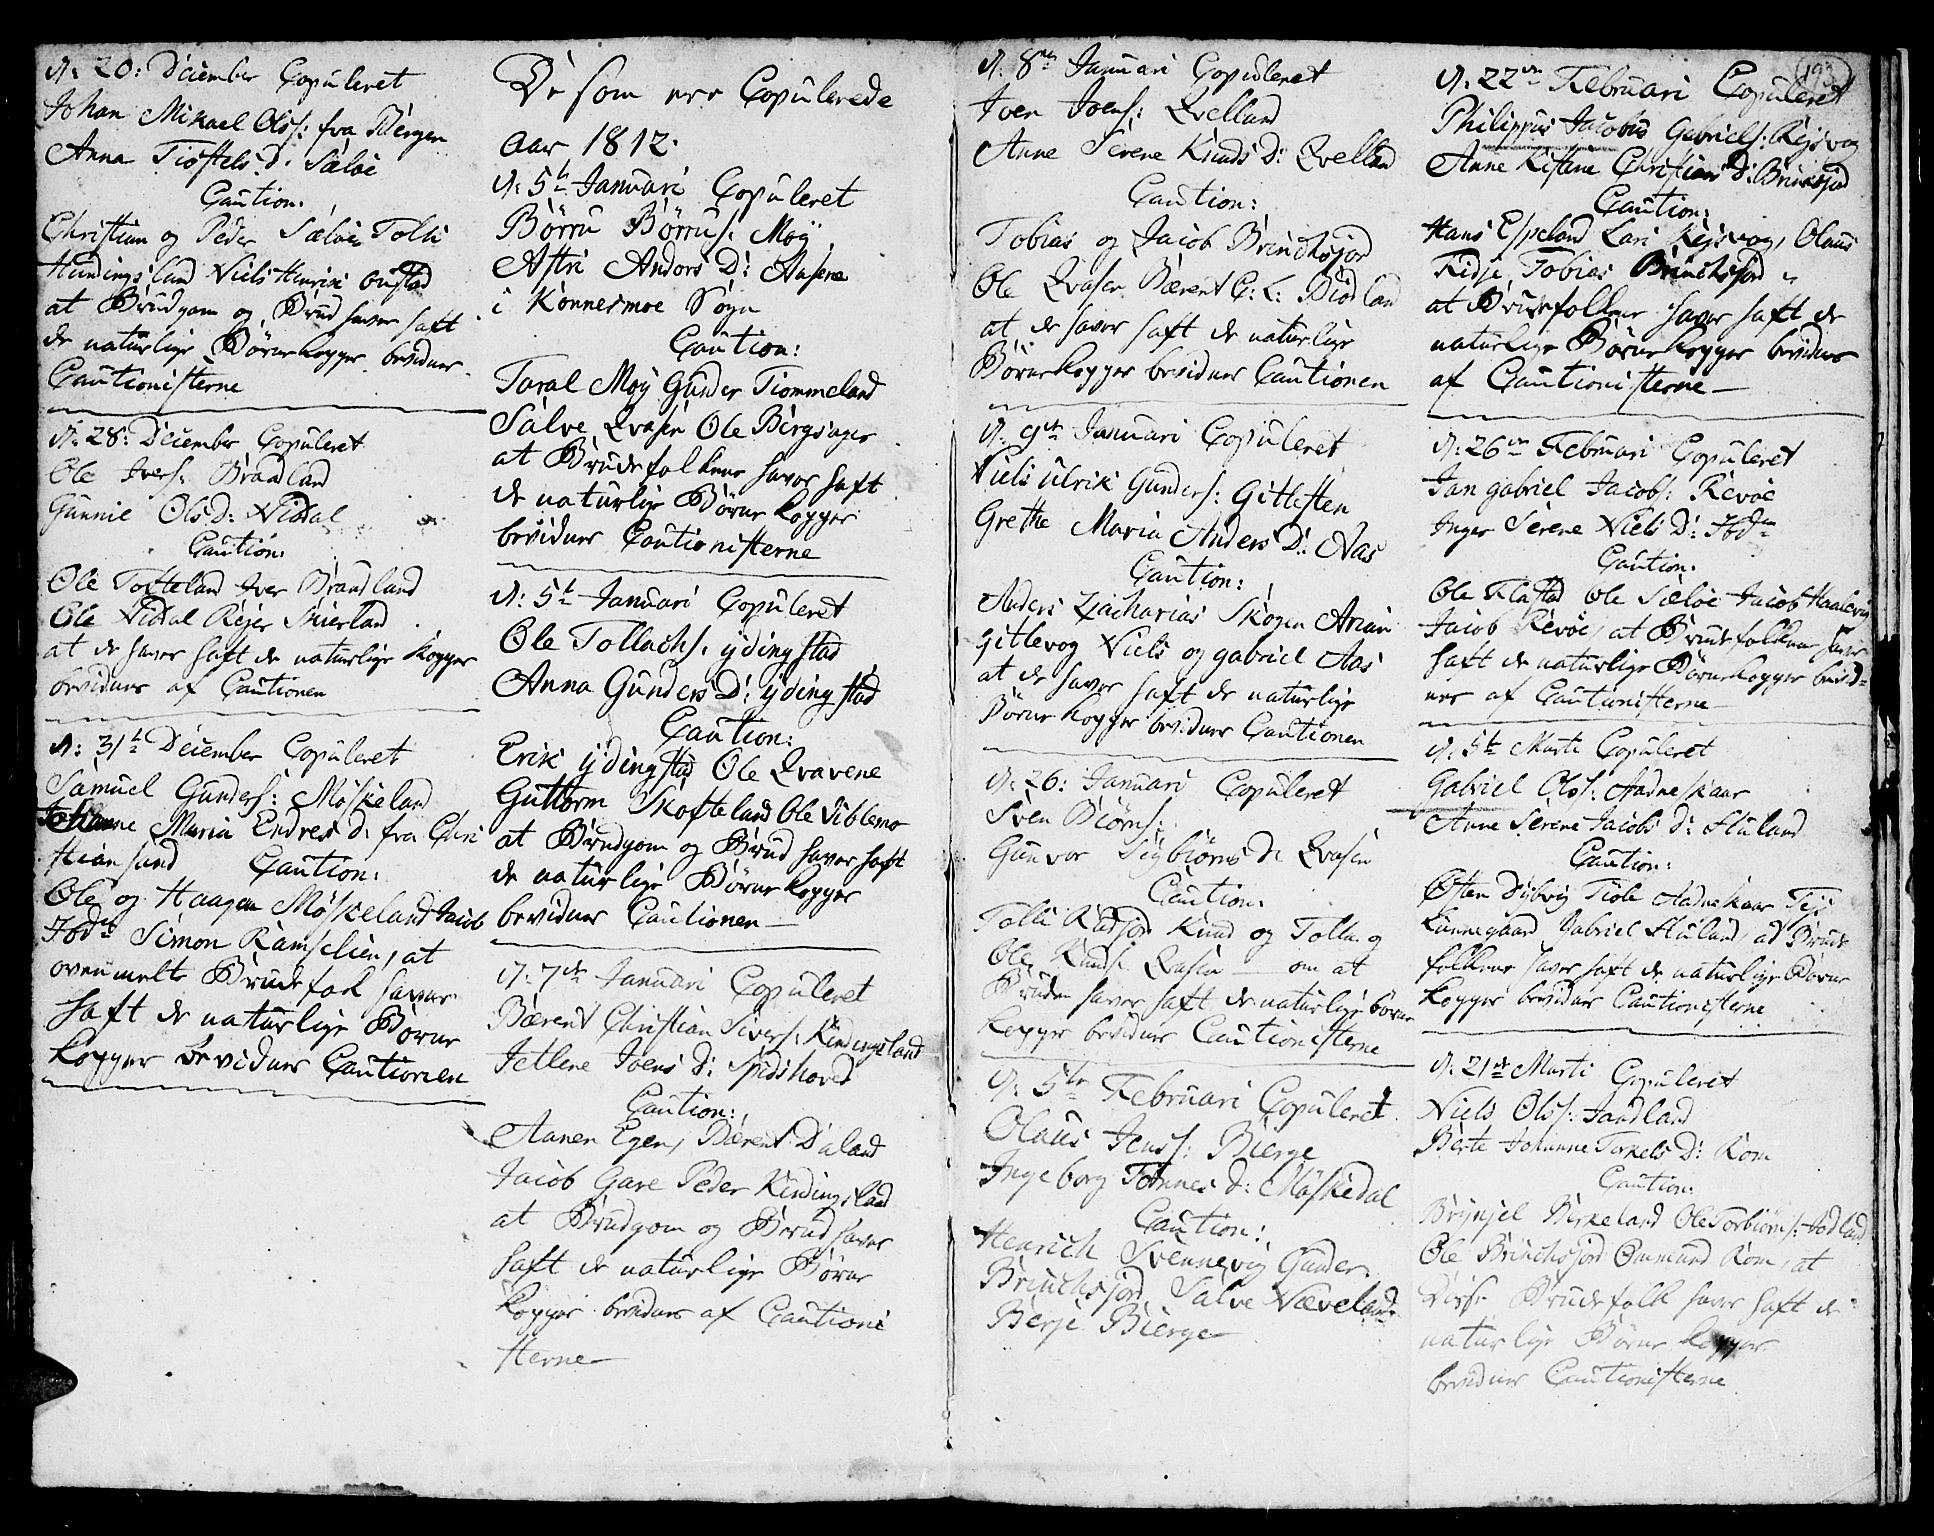 d: 20: December Copuleret
Johan Mikael Ols: fra Bergen
Anna Tiøstels d: Sæløe
Caution:
Christian og Peder Sæløe Tolli
Hundingsland Niels Henrik
at Brudgom og Brud haver haft
de naturlige Børnekopper bevidner
Cautionisterne
d: 28: December Copuleret
Ole Ivers: Brandland
Gunnie Ols D: Niddal
Caution:
Ole Tofteland Iver Brandland
Ole Niddal Rejer Skierland
at de haver haft de naturlige kopper
bevidnes af Cautionen
d: 31t December Copuleret
Samuel Gunders: Møskeland
Johanne Maria Endres d: fra Chri
stiansand Caution:
Ole og Haagen Møskeland Jacob
Simon Ramslien, at
ovenmelte Brudefolk haver
haft de naturlige Børne
kopper bevidner Cautionen
De som ere Copulerede
Aar 1812.
d: 5t Januari Copuleret
Børru Børrus: Møÿ
Astri Anders D: Aasene
i Konnesmoe Sogn
Caution:
Taral Møÿ Gunder Tiommeland
Salve Qvasen Ole Bergsager
at Brudefolkene haver haft
de naturlige Børne kopper
bevidner Cautionisterne
d: 5t Januari Copuleret
Ole Tollachs: ÿdingstad
Anna Gunders D: ÿdingstad
Caution:
Erik ÿdingstad Ole Qvavene
Guttorm Skofteland Ole Viblemo
at Brudgom og Brud haver haft
de naturlige Børne kopper
bevidner Cautionen
d: 7de Januari Copuleret
Bærent Christian Sivers: Kindingsland
Jellene Joens D: Spidshoved
Caution:
Aanen Egen, Bærent Daland
Jacob Gare Peder Kindingsland
at Brudgom og Brud haver
haft de naturlige Børne
kopper bevidnes af Cautioni
sterne
d: 8de Januari Copuleret
Joen Joens: Qvelland
Anne Serene Knuds D: Qvelland
Caution:
Tobias og Jacob Brinchsjord
Ole Qvasen Bærent Diodland
at de haver haft de naturlige
Børnekopper bevidner Cautionen
d: 9de Januari Copuleret
Niels Ulrik Gunders: Gitlesten
Grethe Maria Anders D: Aas
Caution:
Anders Zacharias Skogen Arian
gitlevog Niels og gabriel Aas
at de haver haft de naturlige
Børne kopper bevidner Cautionen
d: 26: Januari Copuleret
Sven Biørns:
Gunvor Sigbiørns D: Qvasen
Caution:
Tolli Knud og Tolle og
Ole Knuds: Qvasen om at
Bruden haver haft de naturlige børne
kopper bevidner Cautionisterne
d: 5te Februari Copuleret
Olaus Jenss: Bierge
Ingeborg Tønnes d: Møskedal
Caution:
Henrich Svennevig Gunder
Brinchsjord Salve Næveland
Berje Bierge
193
d: 22de Februari Copuleret
Philippus Jacobus Gabriels: Rejsvog
Anne Kistine Christians D: Brinksjord
Caution:
Hans Espeland Lars Rejsvog, Olaus
Kidje, Tobias Brinchsjord
at Brudefolkene haver haft de
naturlige Børne kopper bevidnes
af Cautionisterne
d: 26de Februari Copuleret
Jan gabriel Jacobs: Revøe
Inger Serene Niels D:
Caution:
Ole Flastad Ole Sæløe Jacob
Jacob Revøe, at Brudefolkene haver
haft de naturlige Børnekopper bevid=
nes af Cautionisterne
d: 5te Marti Copuleret
Gabriel Ols: Aadneskaar
Anne Serene Jacobs D: Huland
Caution:
Osten Dybvig Tiøls Aadneskaar
Gabriel Huland, ad Brude
folkene haver haft de naturlige Børne
kopper bevidner Cautionisterne
d: 21de Marti Copuleret
Niels Ols: Jaadland
Berte Johanne Torkels D: Rom
Caution:
Brynjel Birkeland Ole Torbiørns: Jodland
Ole Brinchsjord Ommund Rom, at
disse Brudefolk haver haft de
naturlige Børne kopper
bevidner Cautionisterne